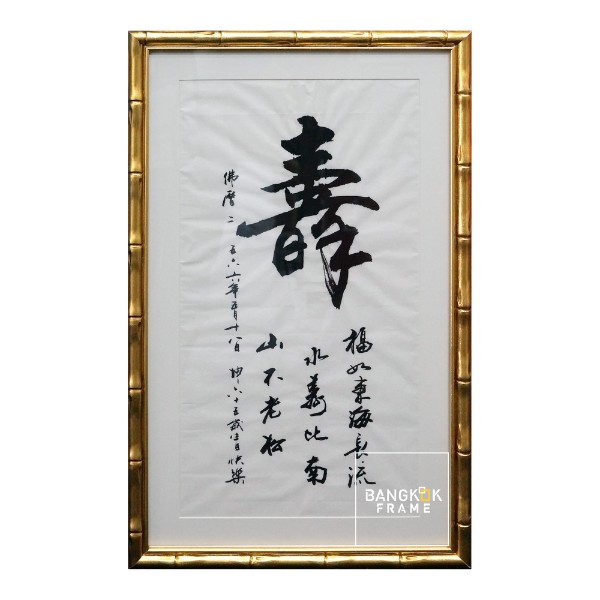 壽
福如東海長流
水壽比南
山不老松
佛曆二五六六年五月十八日 六十五歲生日快樂
BANGKOK
FRAME